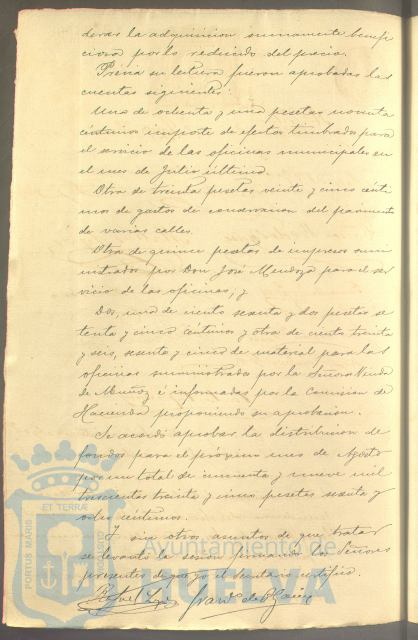 deras la adquisicion sumamente benefi
ciosa por lo reducido del precio.
Prévia su lectura fueron aprobadas las
cuentas siguientes:
Una de ochenta y una pesetas noventa
céntimos importe de efectos timbrados para
el servicio de las oficinas municipales en
el mes de Julio último.
Otra de treinta pesetas veinte y cinco cénti
mos de gastos de conservacion del pavimento
de varias calles.
Otra de quince pesetas de impresos sumi
nistrados por Don José Mendoza para el ser
vicio de las oficinas, y
Dos, una de ciento sesenta y dos pesetas se
tenta y cinco céntimos y otra de ciento treinta
y seis, sesenta y cinco de material para las
oficinas suministrados por la Señora Viuda
de Muñoz é informadas por la Comision de
Hacienda proponiendo su aprobacion.
Se acordó aprobar la distribucion de
fondos para el próximo mes de Agosto
por un total de cincuenta y nueve mil
trescientas treinta y cinco pesetas sesenta y
ocho céntimos.
Y sin otros asuntos de que tratar
se levantó la sesion firmando los Señores
presentes de que yo el secretario certifico.
PORTUS MARIS
ET TERRÆ
Ayuntamiento de
HUELVA